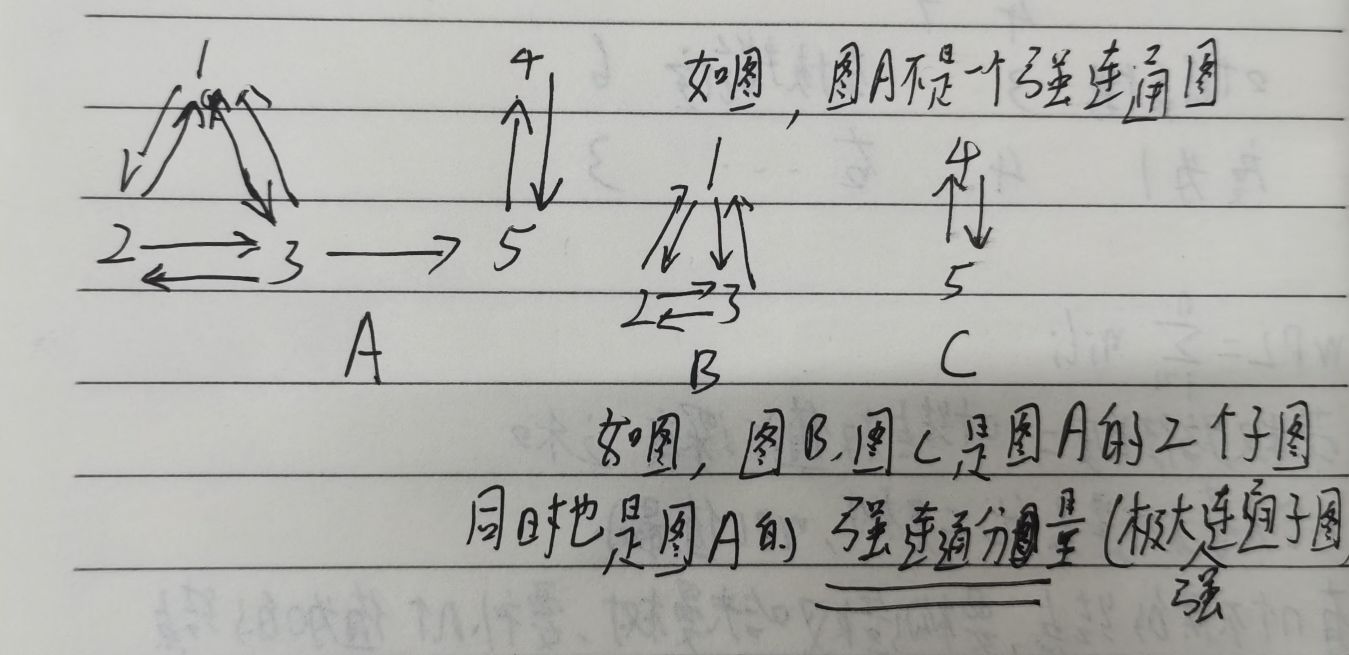 如图，图A不是一个强连通图
1
2
3
4
5
A
1
2
3
B
4
5
C
如图，图B、图C是图A的2个子图
同时也是图A的强连通分量（极大强连通子图